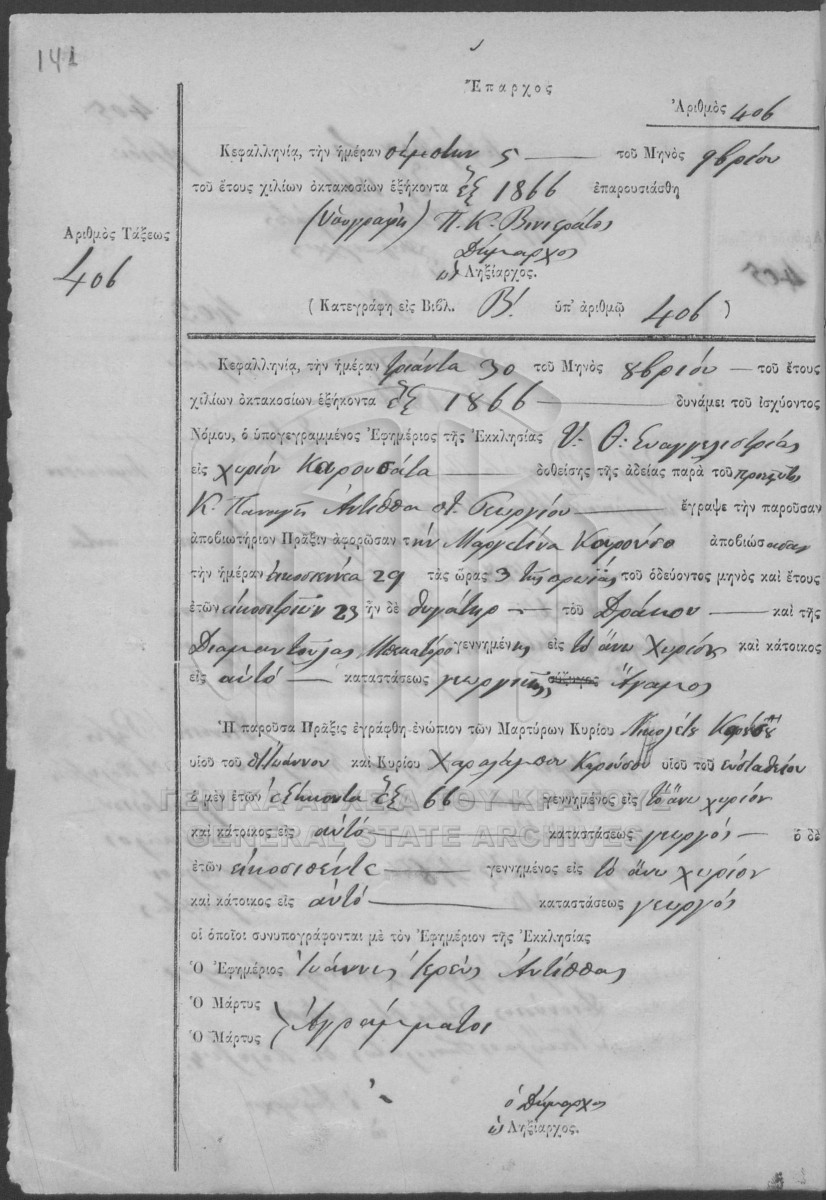 141
Ἔπαρχος
Ἀριθμὸς 406
Κεφαλληνία, τὴν ἡμέραν πέμπτην 5 τοῦ Μηνὸς 9βρίου
τοῦ ἔτους χιλίων ὀκτακοσίων ἑξήκοντα ἓξ 1866 ἐπαρουσιάσθη
(Ὑπογραφὴ) Π. Κ.
Δήμαρχος
Ἀριθμὸς Τάξεως
406
Ληξίαρχος.
(Κατεγράφη εἰς Βιβλ. Β! ὑπ' ἀριθμῷ 406)
Κεφαλληνία, τὴν ἡμέραν τριάντα 30 τοῦ Μηνὸς 8βρίου τοῦ ἔτους
χιλίων ὀκτακοσίων ἑξήκοντα ἓξ 1866 δυνάμει τοῦ ἰσχύοντος
Νόμου, ὁ ὑπογεγραμμένος Ἐφημέριος τῆς Ἐκκλησίας Υ. Θ. Ευαγγελιστρίας
εἰς χωρίον Καρουσάτα δοθείσης τῆς ἀδείας παρὰ τοῦ
Κ. Παναγῆ Αντύππα Γεωργίου ἔγραψε τὴν παροῦσαν
ἀποβιωτήριον Πρᾶξιν ἀφορῶσαν τὴν Μαργετίνα Καρούσο ἀποβιώσασαν
τὴν ἡμέραν εικοσιεννέα 29 τὰς ὥρας 3 της πρωίας τοῦ ὁδεύοντος μηνὸς καὶ ἔτους
ἐτῶν εικοσιτριῶν 23 ἦν δὲ θυγάτηρ τοῦ Δράκου καὶ τῆς
Διαμαντούλας γεννημένης εἰς τὸ ἄνω χωρίον καὶ κάτοικος
εἰς αὐτό καταστάσεως γεωργικῆς σύζυγος Ἄγαμος
Ἡ παροῦσα Πρᾶξις ἐγράφθη ἐνώπιον τῶν Μαρτύρων Κυρίου Νικολέτο
υἱοῦ τοῦ Ιωάννου καὶ Κυρίου Χαραλάμπου Καρούσου υἱοῦ τοῦ ευσταθείου
ὁ μὲν ἐτῶν ἑξήκοντα ἓξ 66 γεννημένος εἰς τὸ ἄνω χωρίον
καὶ κάτοικος εἰς αὐτό καταστάσεως γεωργός ὁ δὲ
ἐτῶν εἰκοσιπέντε γεννημένος εἰς τὸ ἄνω χωρίον
καὶ κάτοικος εἰς αὐτό καταστάσεως γεωργός
οἱ ὁποῖοι συνυπογράφονται μὲ τὸν Ἐφημέριον τῆς Ἐκκλησίας
Ὁ Ἐφημέριος Ἰωάννις Ἱερεὺς Αντύππας
Ὁ Μάρτυς
Ὁ Μάρτυς } Ἀγράμματοι
ὁ Δήμαρχος
Ληξίαρχος.
ΓΕΝΙΚΑ ΑΡΧΕΙΑ ΤΟΥ ΚΡΑΤΟΥΣ
GENERAL STATE ARCHIVES